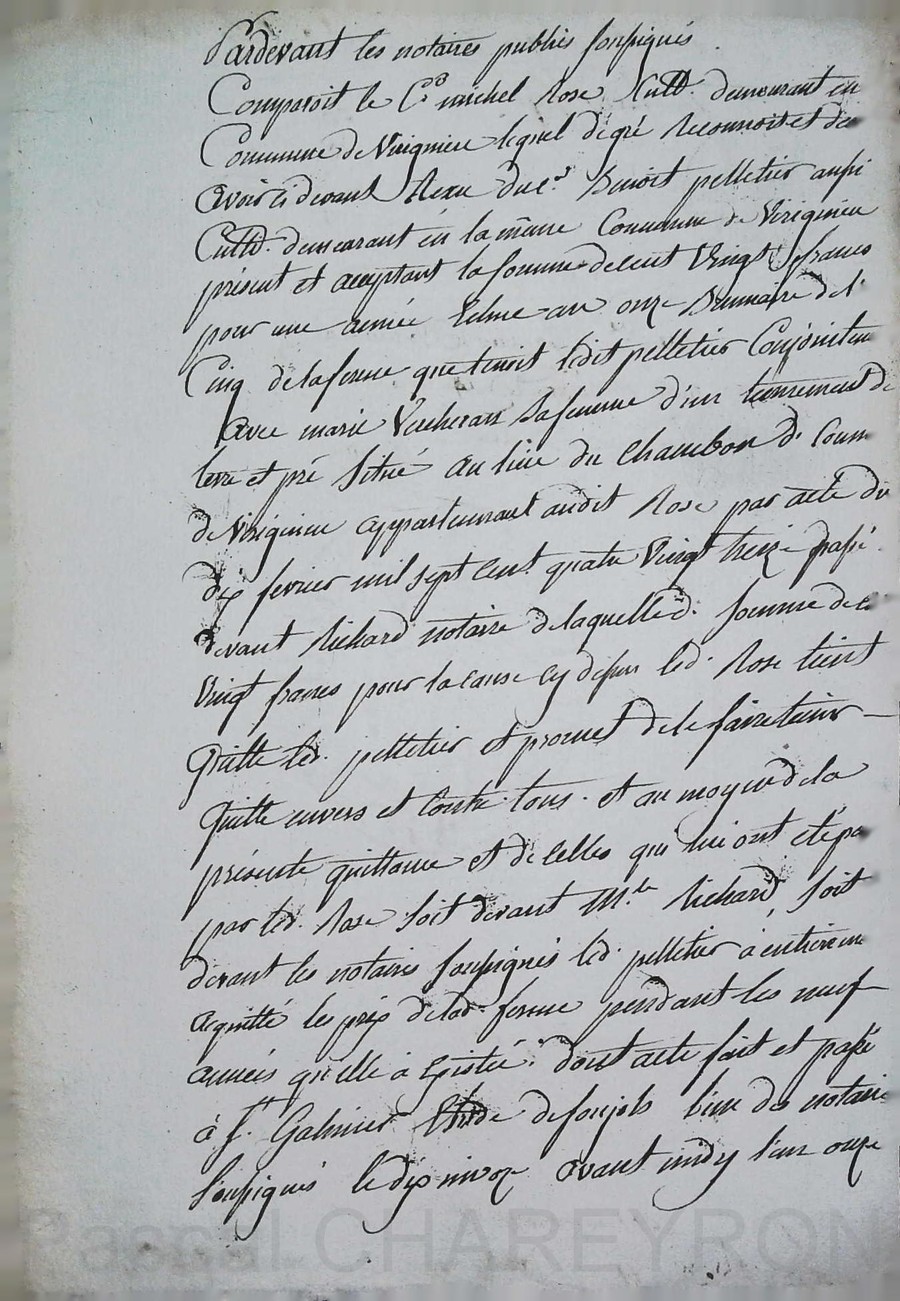 Pardevant les notaires publics soussignés
Comparoit le C.en michel Rose Cultr. demeurant en
Commune de Virignieu lequel de gré Reconnoit et de
avoir ci devant Recu du c.en Benoit pelletier aussi
Cultr. demeurant en la même Commune de Virignieu
présent et acceptant la somme de cent Vingt francs
pour une année Echue au onze Brumaire de l'
Cinq de la ferme que tenoit ledit pelletier Conjointem
Avec marie Vercherau sa femme d'un tennement de
terre et pré Situé au lieu du Chambon d. Com
de Virignieu appartenant audit Rose par acte du
dix fevrier mil sept cent quatre Vingt treize passé
devant Richard notaire de laquelle d. Somme de c
Vingt francs pour la cause cy dessus led. Rose tient
Quitte led. pelletier et promet de le faire tenir
Quitte envers et contre tous. et au moyen de la
présente quittance et de celles qui lui ont été pa
par led. Rose Soit devant M.re Richard, Soit
devant les notaires soussignés led. pelletier à entierem
acquitté les prix de lad. ferme pendant les neuf
années qu'elle à Existée. dont acte fait et passé
à S.t Galmier Etude de l'un des notaire
soussignés le dix nivoze avant midy l'an onze
Pascal CHAREYRON